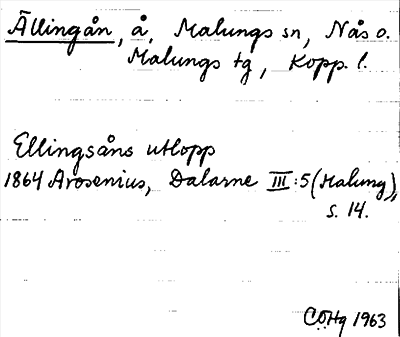 Ällingån, å, Malungs sn, Nås o.
Malungs tg, Kopp. l.
Ellingsåns utlopp
1864 Arosenius, Dalarne III:5 (Malung),
s. 14.
CÖHg 1963